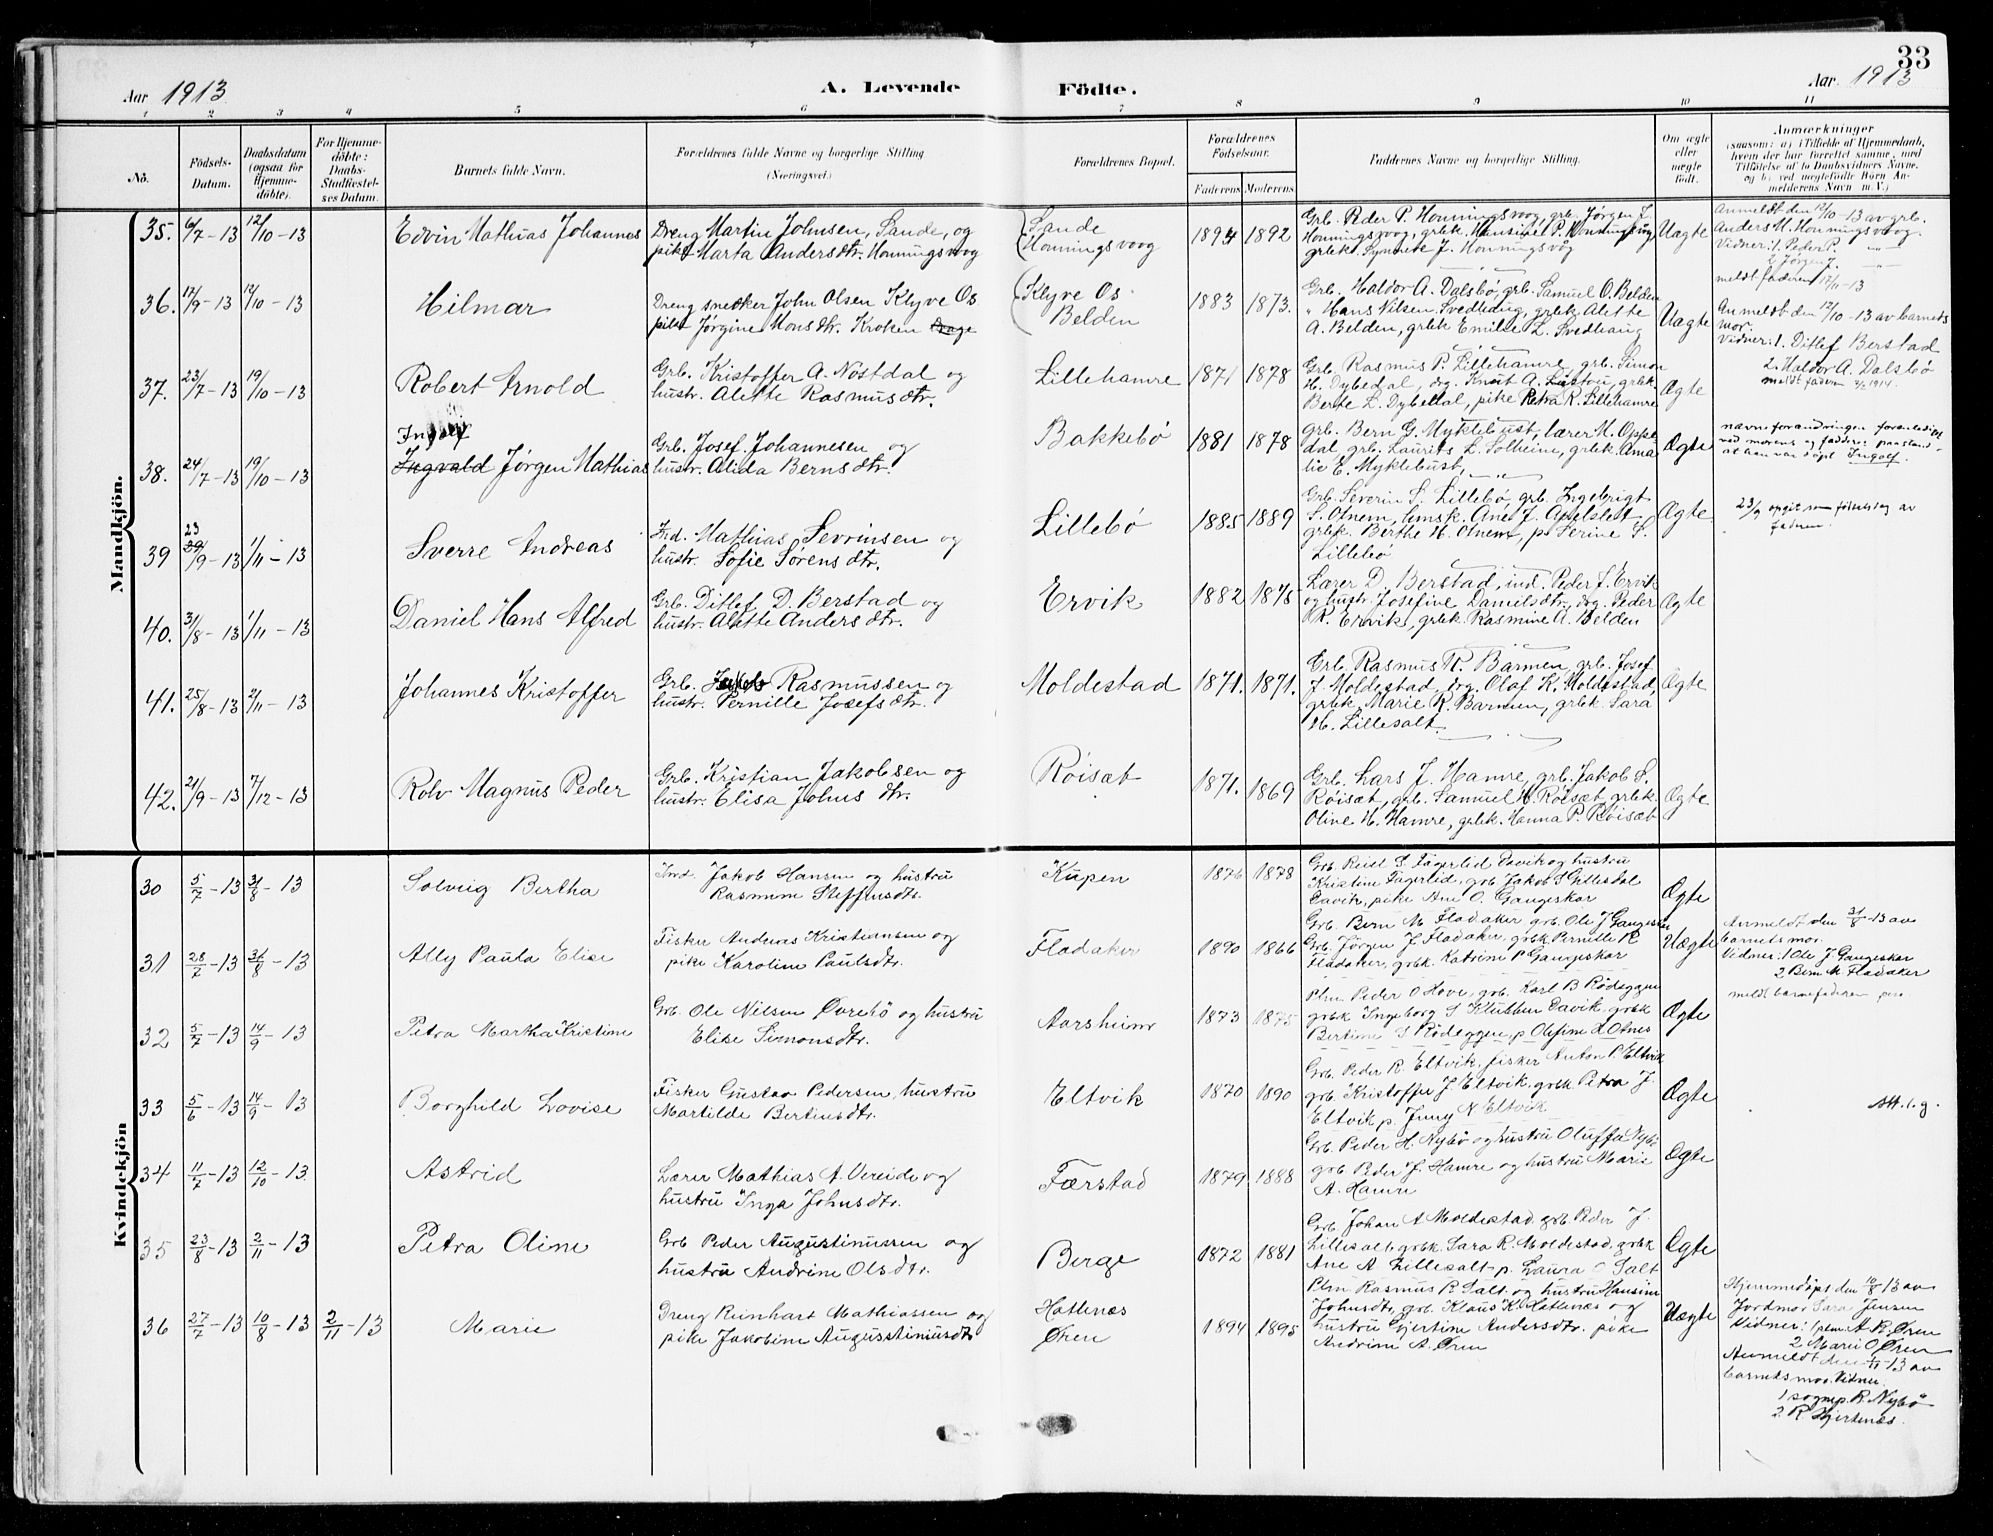 33
Aar 1913. A. Levende Födte. Aar. 1913
1 2 3 4 5 6 7 8 9 10 11
No. Födsels-Datum. Daabsdatum (ogsaa for Hjemmedöbte). For Hjemmedöbte: Daabs-Stadfæstelses Datum. Barnets fulde Navn. Forældrenes fulde Navne og borgerlige Stilling (Næringsvei.) Forældrenes Bopæl. Forældrenes Födselsaar. Faderens Moderens Faddernes Navne og borgerlige Stilling. Om ægte eller uægte födt. Anmærkninger
(saasom: a) i Tilfælde af Hjemmedaab, hvem der har forrettet samme, med Tilföielse af to Daabsvidners Navne, og b) ved uægtefödte Börn Anmelderens Navn m. V.)
Mandkjön.
35. 6/7-13 12/10-13 Edvin Mathias Johannes
Dreng Martin Johnsen, Sande, og
pike Marta Andersdtr. Honningsvoog
Sande
Honningsvoog
1894 1892
Grb. Peder P. Honningsvoog, grb. Jørgen J.
Honningsvoog, grbk. Hansine P. Honningsvog
grbk. Synneve J. Honningsvåg
Uagte
Anmeldt den 12/10-13 av grb.
Anders M. Honningsvoog.
Vidner: 1. Peder P. "
2 Jørgen J. "
meldt faderen 17/11-13
36. 17/9-13 12/10-13 Hilmar
Dreng snedker John Olsen Klyve Os
pike Jørgine Monsdtr. Kroken
Klyve Os
Belden
1883 1873.
Grb. Haldor A. Dalsbö, grb. Samuel O. Belden
" Hans Nilsen Svedhaug, grbk Alette
A. Belden, grbk Emilie L. Svedhaug
Uagte
Anmeldt den 12/10-13 av barnets
mor.
Vidner: 1. Ditlef Berstad
2. Haldor A. Dalsbö
37. 23/7-13 19/10-13 Robert Arnold
Grb. Kristoffer A. Nöstdal og
hustr. Alette Rasmusdtr.
Lillehamre 1871 1878
Grb. Rasmus P. Lillehamre, grb. Simon
H. Dybedal, drg. Knut A. grbk.
Berte L. Dybedal, pike Petra R. Lillehamre
Ægte
meldt fadern 1914.
38. 24/7-13 19/10-13
Ingolf
Ingvald Jørgen Mathias
Grb. Josef Johannesen og
hustr. Alida Bernsdtr.
Bakkebö 1881 1878
grb. Bern G. Myklebust, lærer M. Oppe-
dal, grb. Laurits L. Solheim, grbk. Ama-
lie E. Myklebust,
Ægte
navneforandringen foranlediget
ved morens og fadderes paastand
at han var döpt Ingolf.
39 23/9-13 1/11-13 Sverre Andreas
Ind. Mathias Sevrinsen og
hustr. Sofie Sörensdtr.
Lillebö 1885 1889
Grb. Severin S. Lillebö, grb. Ingebrigt
S. Otnem, Ane J.
grbk. Berthe M. Otnem, p. Serine S.
Lillebö
Ægte
23/9 opgit som födselsdag av
fadern.
40. 31/8-13 1/11-13 Daniel Hans Alfred
Grb. Ditlef D. Berstad og
hustr. Alette Andersdtr.
Ervik 1882 1875
Lærer D. Berstad, ind. Peder J. Ervik
og hustr. Josefine Danielsdtr., drg. Peder
R. Ervik, grbk. Rasmine A. Belden
Ægte
41. 25/8-13 2/11-13 Johannes Kristoffer
Grb. Jakob Rasmussen og
hustr. Pernille Josefsdtr.
Moldestad 1871. 1871.
Grb. Rasmus R. Barmen, grb. Josef
J. Moldestad, drg. Olaf K. Moldestad,
grbk. Marie R. Barmen, grbk. Sara
M. Lillesalt.
Ægte
42. 21/9-13 7/12-13 Rolv Magnus Peder
Grb. Kristian Jakobsen og
hustr. Elisa Johnsdtr.
Röisæt 1871. 1869
Grb. Lars J. Hamre, grb. Jakob S.
Röisæt, grb. Samuel H. Röisæt, grbk.
Oline H. Hamre, grbk. Hanna P. Röisæt
Ægte
Kvindekjön
30 5/7-13 31/8-13 Solveig Bertha
Ind. Jakob Hansen og hustru
Rasmine Steffensdtr.
Kupen 1876 1878
Grb. Reiel S. Fagerlid Eavik og hustru
Kristine Fagerlid, grb Jakob S Gillesdal
Eavik, pike Ane O. Gangeskar
Ægte
31 28/7-13 31/8-13 Ally Paula Elise
Fisker Andreas Kristiansen og
pike Karoline Paulsdtr.
Fladaker 1890 1866
Grb. Bern M Fladaker grb. Ole J Gangeskar
Grb. Jørgen J. Fladaker. grbk Pernille R
Fladaker, grbk. Katrine P Gangeskar
Uægte
Anmeldt den 31/8-13 av
barnets mor.
Vidner: 1 Ole J. Gangeskar
2 Bern M Fladaker
meldt barnefaderen
32 5/7-13 14/9-13 Petra Martha Kristine
Grb. Ole Nilsen Øvrebö og hustru
Elise Simonsdtr.
Aarsheim 1873 1875
Plm Peder O Hove, grb. Karl B Rödeggen
grbk Ingeborg S Klubben Eavik, grbk
Bertine S Rödeggen, p. Olefine L Otnes
Ægte
33 5/6-13 14/9-13 Borghild Lovise
Fisker Gustav Pedersen, hustru
Martilde Bertinsdtr.
Eltvik 1870 1890
Grb. Peder R. Eltvik, fisker Anton P. Eltvik
grb. Kristoffer J. Eltvik. grbk Petra J.
Eltvik p. Jenny N Eltvik
Ægte
34 11/7-13 12/10-13. Astrid
Lærer Mathias A. Vereide og
hustru Inga Johnsdtr.
Færstad 1879 1888
Grb. Peder H. Nybö og hustru Oluffa Nybö
grb Peder J. Hamre og hustru Marie
A. Hamre
Ægte
35 23/8-13 2/11-13 Petra Oline
Grb Peder Augustinussen og
hustru Andrine Olsdtr.
Berge 1872 1881
Grb. Johan A Moldestad, grb. Peder J.
Lillesalt, grbk. Sara R. Moldestad, grbk
Ane A Lillesalt p. Laura O Salt
Ægte
36 27/7-13 10/8-13 2/11-13 Marie
Dreng Reinhart Mathiassen og
pike Jakobine Augusstinusdtr
Hatlenæs
Øren
1894 1895
Plm Rasmus R Salt og hustru Hansine
Johnsdtr, grb. Klaus K. Hatlenæs og
hustru Gjertine Andersdtr. pike
Andrine A. Øren
Uægte
Hjemmedöpt den 10/8 13 av
Jordmor Sara Jensen
Vidner: 1 plm. A R. Øren
2 Marie O Øren
Anmeldt den 1/11-13 av
barnets mor. Vidner.
1 sognep. R. Nybö
2. R Hjertenæs.